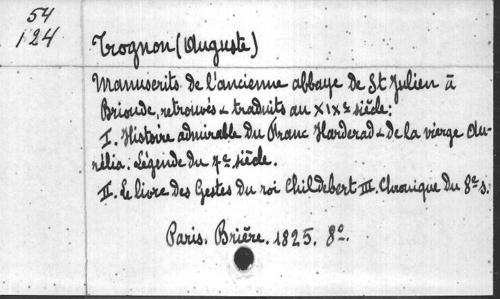 54
124
Trognon (Auguste)
Manuscrits de l'ancienne abbaye de St Julien à
Brioude, retrouvés & traduits au XIXe siècle:
I. Histoire admirable du Franc Harderad & de la vierge Au-
rélia. Légende du 7e siècle.
II. Le livre des Gestes du roi Childebert III. Chronique du 8e s.
Paris. Brière. 1825. 8º.